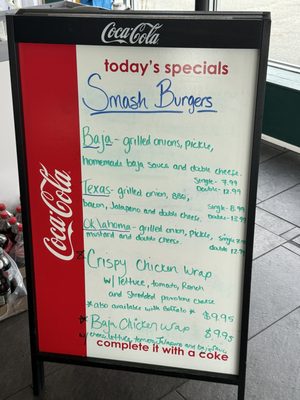 Coca-Cola
today's specials
Smash Burgers
Baja - grilled onions, pickle,
homemade baja sauce and double cheese.
Single - 7.99
Double - 12.99
Texas - grilled onion, BBQ,
bacon, Jalapeno and double cheese.
Single - 8.99
Double - 13.99
Oklahoma - grilled onion, pickle,
mustard and double cheese.
Single
double 12.99
Coca-Cola
Crispy Chicken Wrap
w/ lettuce, tomato, Ranch
and Shredded cheese
*also available with Buffalo * $9.95
* Baja Chicken Wrap $9.95
w/ cheese, lettuce, tomato, Jalapeno and baja sauce
complete it with a coke